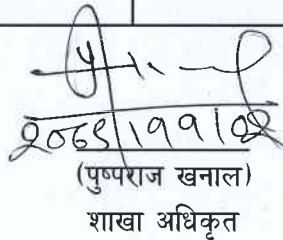 २०७९|११|०२
(पुष्पराज खनाल)
शाखा अधिकृत